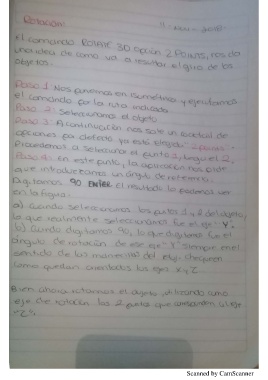 Rotación:
El comando ROTATE 3D opción 2 Points, nos da
una idea de como va a resultar el giro de los
objetos.
Paso 1 Nos ponemos en isométrico y ejecutamos
el comando por la ruta indicada.
Paso 2: Seleccionamos el objeto
Paso 3: A continuación nos sale un
opciones por defecto ya está elegida "2 points"
Procedemos a Seleccionar el punto 1, luego el 2,
Paso 4: En este punto, la aplicación nos pide
que introduzcamos un ángulo de referencia.
Digitamos 90 ENTER El resultado lo podemos ver
en la figura:
a) Cuando seleccionamos los puntos 1 y 2 del objeto,
lo que realmente seleccionamos fue el eje "Y".
b) Cuando digitamos 90, lo que digitamos fue el
ángulo de rotación de ese eje "Y" siempre en el
sentido de las manecillas del reloj. chequeen
como quedan orientados los ejes X y Z
Bien ahora rotaremos el objeto utilizando como
eje de rotación los 2 puntos que el eje
"Z".
Scanned by CamScanner